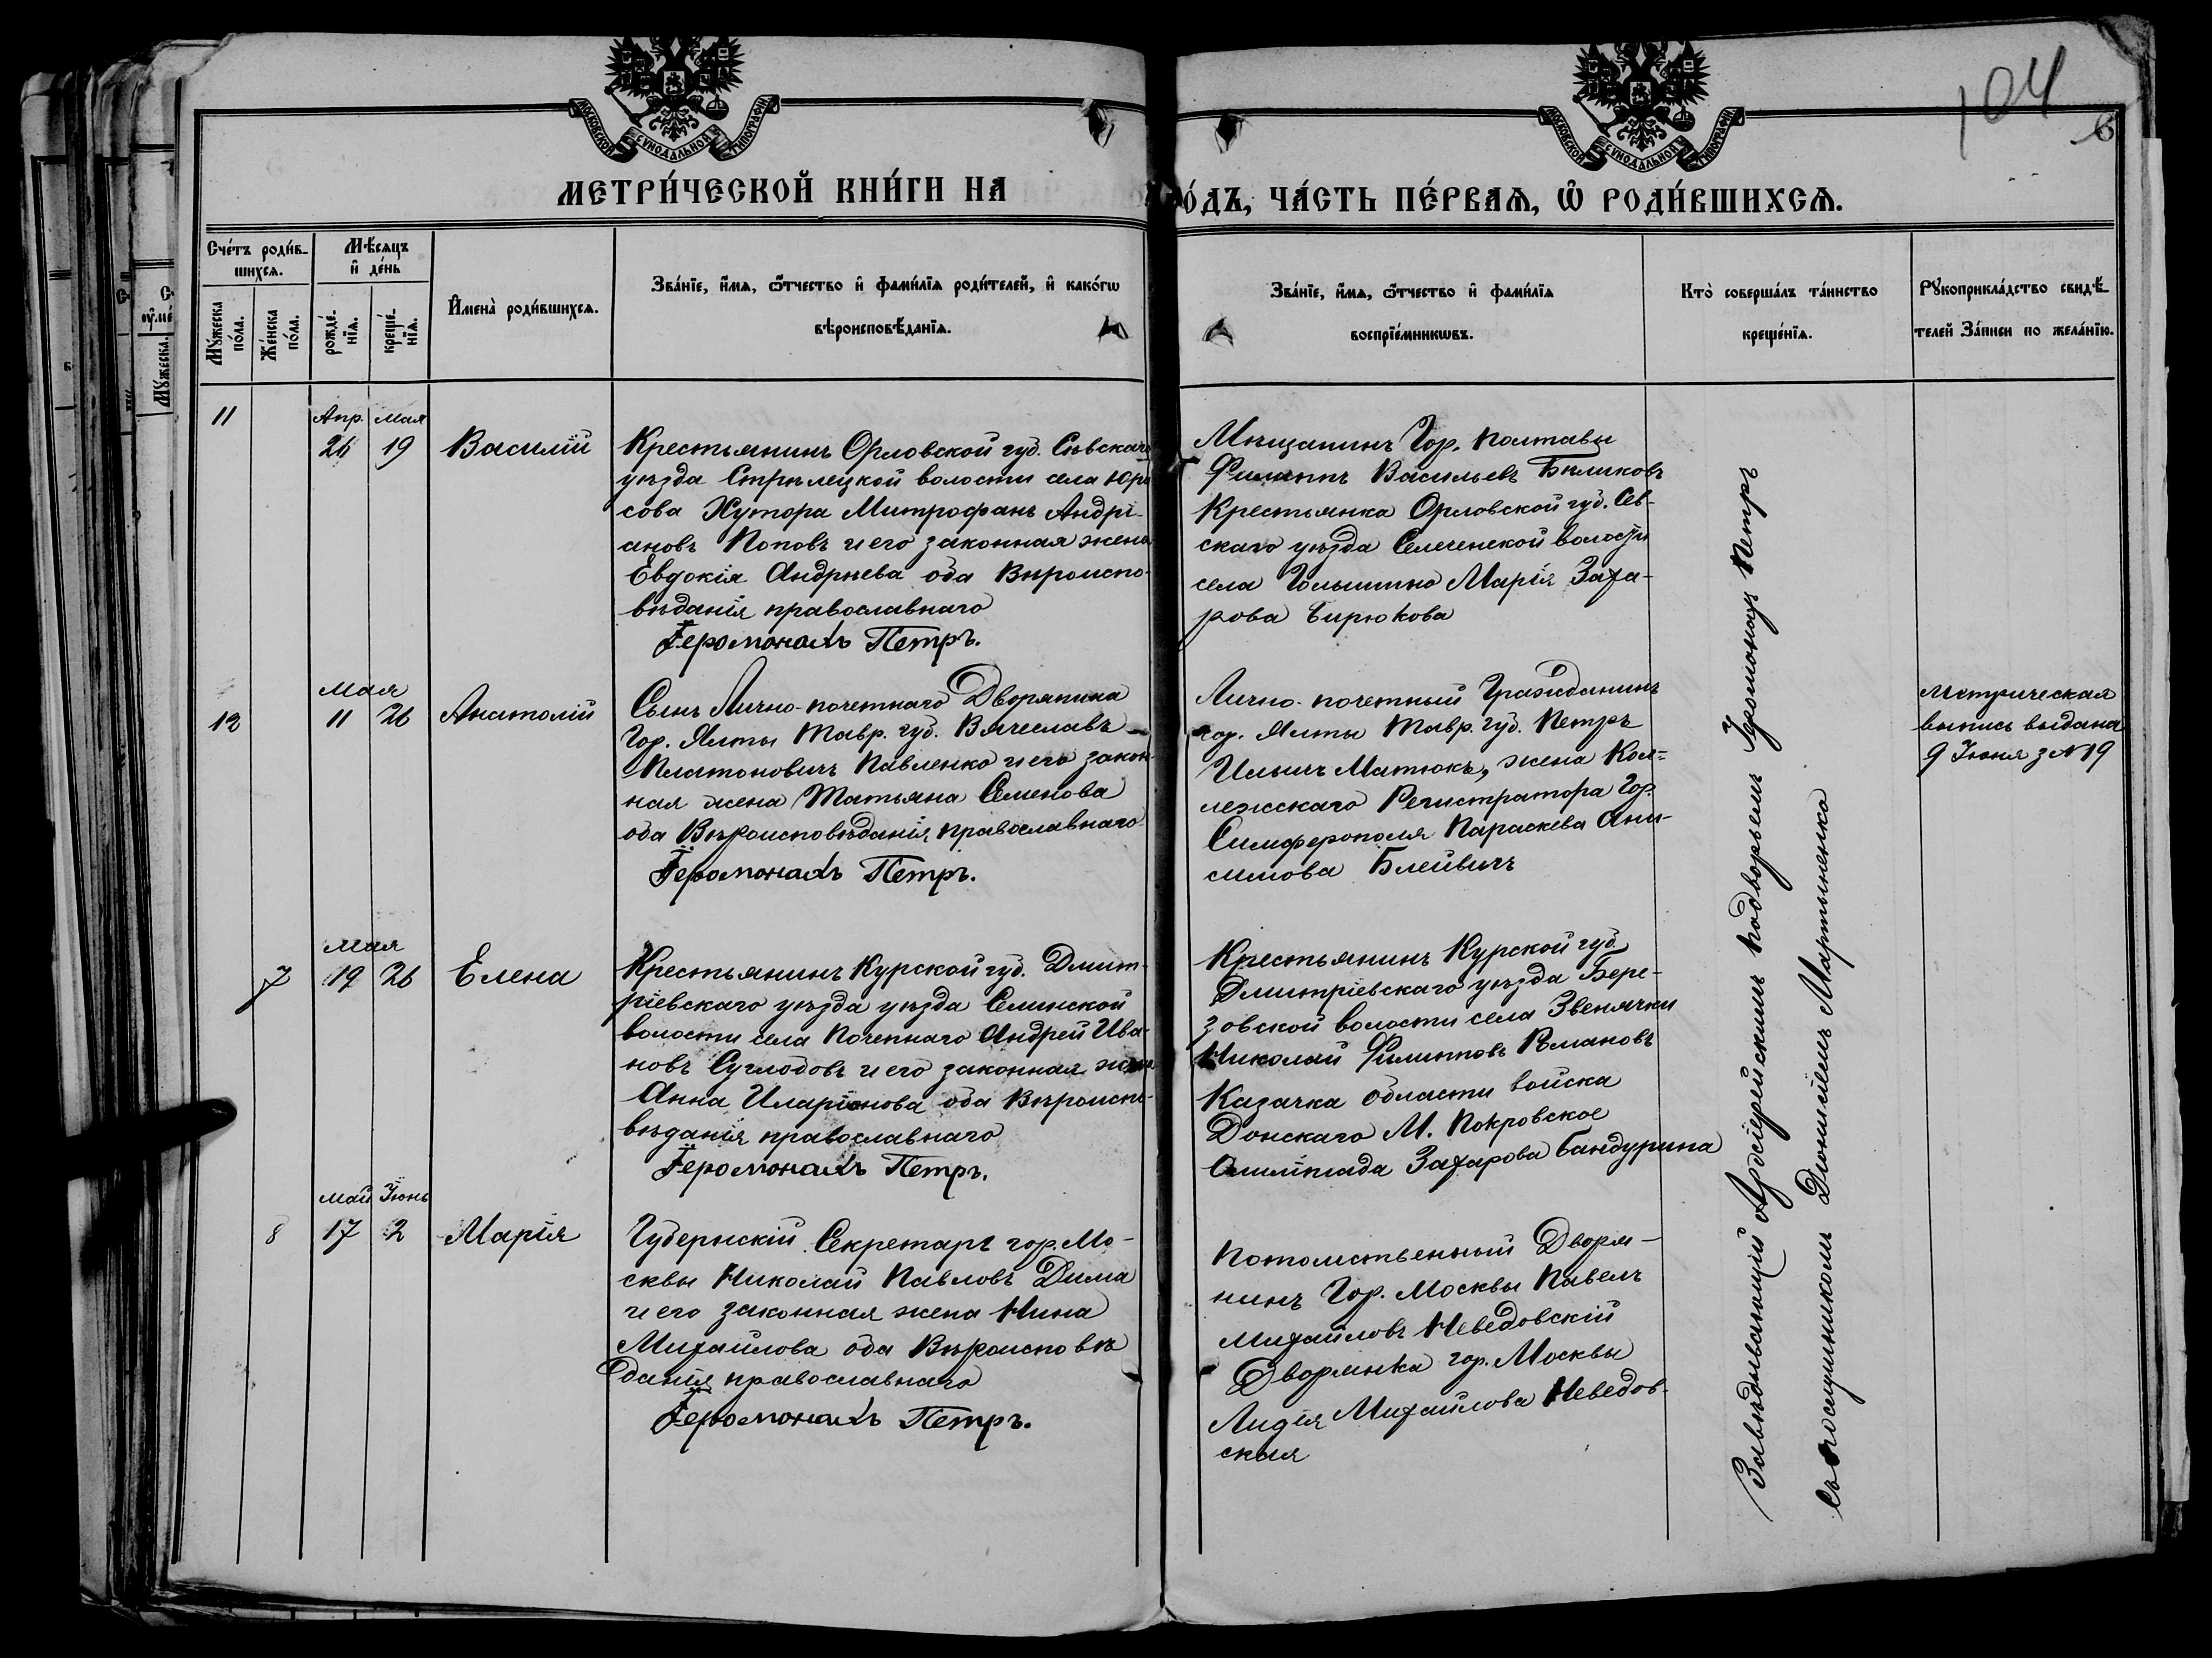 МОСКОВСКОЙ СѴНОДАЛЬНОЙ ТИПОГРАФІИ
МОСКОВСКОЙ СѴНОДАЛЬНОЙ ТИПОГРАФІИ
104
6
МЕТРИ́ЧЕСКОЙ КНИ́ГИ НА
О́ДЪ, ЧА́СТЬ ПЕ́РВАѦ, Ѡ҆ РОДИ́ВШИХСѦ.
Сче́тъ роди́в-
шихсѧ.
Мѣ́сѧцъ
и҆ де́нь
Мꙋ́жеска
по́ла.
Же́нска
по́ла.
рожде́-
нїѧ.
креще́-
нїѧ.
И҆мена̀ роди́вшихсѧ.
Зва́нїе, и҆́мѧ, ѻ҆́тчество и҆ фами́лїѧ роди́телей, и҆ како́гѡ
вѣроисповѣ́данїѧ.
Зва́нїе, и҆́мѧ, ѻ҆́тчество и҆ фами́лїѧ
воспрїе́мникѡвъ.
Кто̀ соверша́лъ та́инство
креще́нїѧ.
Рꙋкоприкла́дство свидѣ́-
телей За́писи по жела́нїю.
11
Апр. Мая
26 19
Василій
Крестьянинъ Орловской губ. Сѣвскаго
уѣзда Стрѣлецкой волости села Юра
сова Хутора Митрофанъ Андрі-
ановъ Поповъ и его законная жена
Евдокія Андрѣева оба Вѣроиспо-
вѣданія православнаго
Іеромонахъ Петръ.
Мѣщанинъ Гор. Полтавы
Филиппъ Васильевъ Бѣликовъ
Крестьянка Орловской губ. Сев-
скаго уѣзда Селеченской волости
села Голышино Марія Заха-
рова Бирюкова
12
Мая
11 26
Анатолій
Сынъ Лично-почетнаго Дворянина
Гор. Ялты Тавр. губ. Вячеславъ
Платоновичъ Павленко и его закон-
ная жена Татьяна Семенова
оба Вѣроисповѣданія православнаго
Іеромонахъ Петръ.
Лично-почетный Гражданинъ
гор. Ялты Тавр. губ. Петръ
Ильичъ Матюкъ, жена Кол=
лежскаго Регистратора Гор.
Симферополя Параскева Ани-
симова Блейвичъ
Метрическая
выпись выдана
9 Іюня з № 19
7
Мая
19 26
Елена
Крестьянинъ Курской губ. Дмит-
ріевскаго уѣзда уѣзда Селинской
волости села Почепнаго Андрей Ива-
новъ Суглобовъ и его законная жена
Анна Иларіонова оба Вѣроиспо-
вѣданія православнаго
Іеромонахъ Петръ.
Крестьянинъ Курской губ.
Дмитріевскаго уѣзда Бере-
зовской волости села Звенячки
Николай Филипповъ Романовъ
Казачка Области войска
Донскаго М. Покровское
Олимпіада Захарова Бандурина
8
Май Іюнь
17 2
Марія
Губернскій Секретарь гор. Мо-
сквы Николай Павловъ Дима
и его законная жена Нина
Михайлова оба Вѣроисповѣ
данія православнаго
Іеромонахъ Петръ.
Потомственный Дворя-
нинъ Гор. Москвы Павелъ
Михайловъ Неведовскій
Дворянка гор. Москвы
Лидія Михайлова Неведов-
ская
Завѣдывающій Архіерейскимъ подворьемъ Іеромонахъ Петръ
съ послушникомъ Діонисіемъ Мартыненко